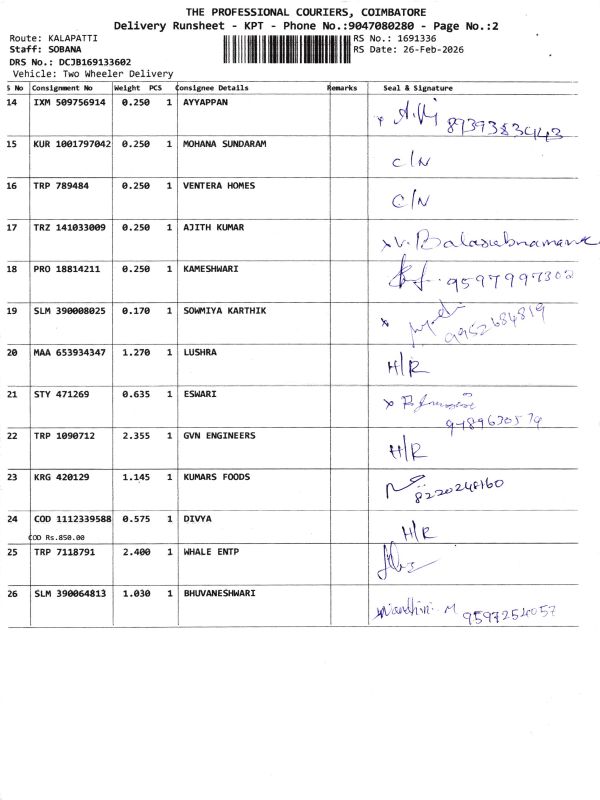 THE PROFESSIONAL COURIERS, COIMBATORE
Delivery Runsheet - KPT - Phone No.:9047080280 - Page No.:2
Route: KALAPATTI RS No.: 1691336
Staff: SOBANA RS Date: 26-Feb-2026
DRS No.: DCJB169133602
Vehicle: Two Wheeler Delivery
S No Consignment No Weight PCS Consignee Details Remarks Seal & Signature
14 IXM 509756914 0.250 1 AYYAPPAN
15 KUR 1001797042 0.250 1 MOHANA SUNDARAM C/N
16 TRP 789484 0.250 1 VENTERA HOMES C/N
17 TRZ 141033009 0.250 1 AJITH KUMAR x V. Balasubramana
18 PRO 18814211 0.250 1 KAMESHWARI 9597997302
19 SLM 390008025 0.170 1 SOWMIYA KARTHIK x 9952684819
20 MAA 653934347 1.270 1 LUSHRA H/R
21 STY 471269 0.635 1 ESWARI x
22 TRP 1090712 2.355 1 GVN ENGINEERS H/R
23 KRG 420129 1.145 1 KUMARS FOODS 8220248160
24 COD 1112339588 0.575 1 DIVYA H/R
COD Rs.850.00
25 TRP 7118791 2.400 1 WHALE ENTP
26 SLM 390064813 1.030 1 BHUVANESHWARI M 9597254057